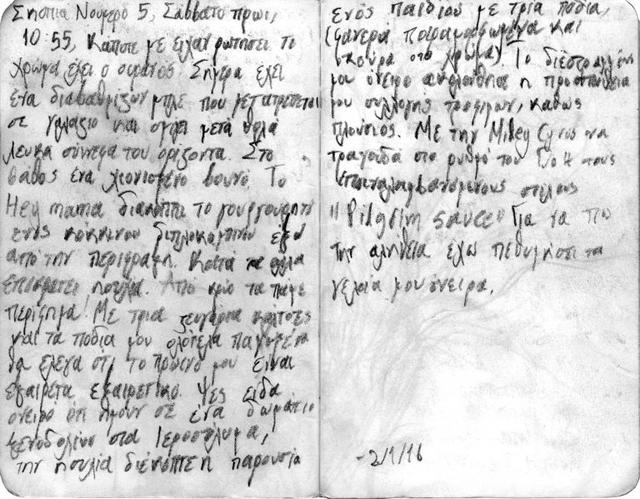 Σκηπια Νούμερο 5, Σάββατο πρωι,
10:55, Κάποτε με είχαν ρωτήσει το
χρώμα έχει ο ουρανός. Σήμερα έχει
ένα διαβαθμίζον μπλε που μετατρέπεται
σε γαλάζιο και σμίγει μετά
λευκά σύννεφα του ορίζοντα. Στο
βάθος ένα χιονισμένο βουνό. Το
Hey mama διακόπτει το γουργουρητό
ενός κόκκινου διπλοκάμπινου έξω
από την περιγραφή. Κατά τα άλλα
επικρατεί ησυχία. Από κρύο τα πάμε
περίφημα! Με τρία ζευγάρια κάλτσες
και τα πόδια μου ολότελα παγωμένα
να έλεγα ότι το πρωινό μου είναι
εξαιρετικό. Ψες είδα
όνειρο ότι ήμουν σε ένα δωμάτιο
ξενοδοχείου στα Ιεροσόλυμα,
την ησυχία διέκοπτε η παρουσία
ενός παιδιού με τρία πόδια,
(φανερά παραμορφωμένα και
σκούρα στο χρώμα). Το
μου όνειρο ακολούθησε η προσπάθεια
μου συλλογής τροφίμων, καθώς
πλούσιος. Με την Miley Cyrus να
τραγουδά στο ρυθμό του στους
επαναλαμβανόμενους στίχους
"Pilgrim sauce" Για να πω
την αλήθεια έχω πεθυμήσει τα
γελοία μου όνειρα.
-2/1/16